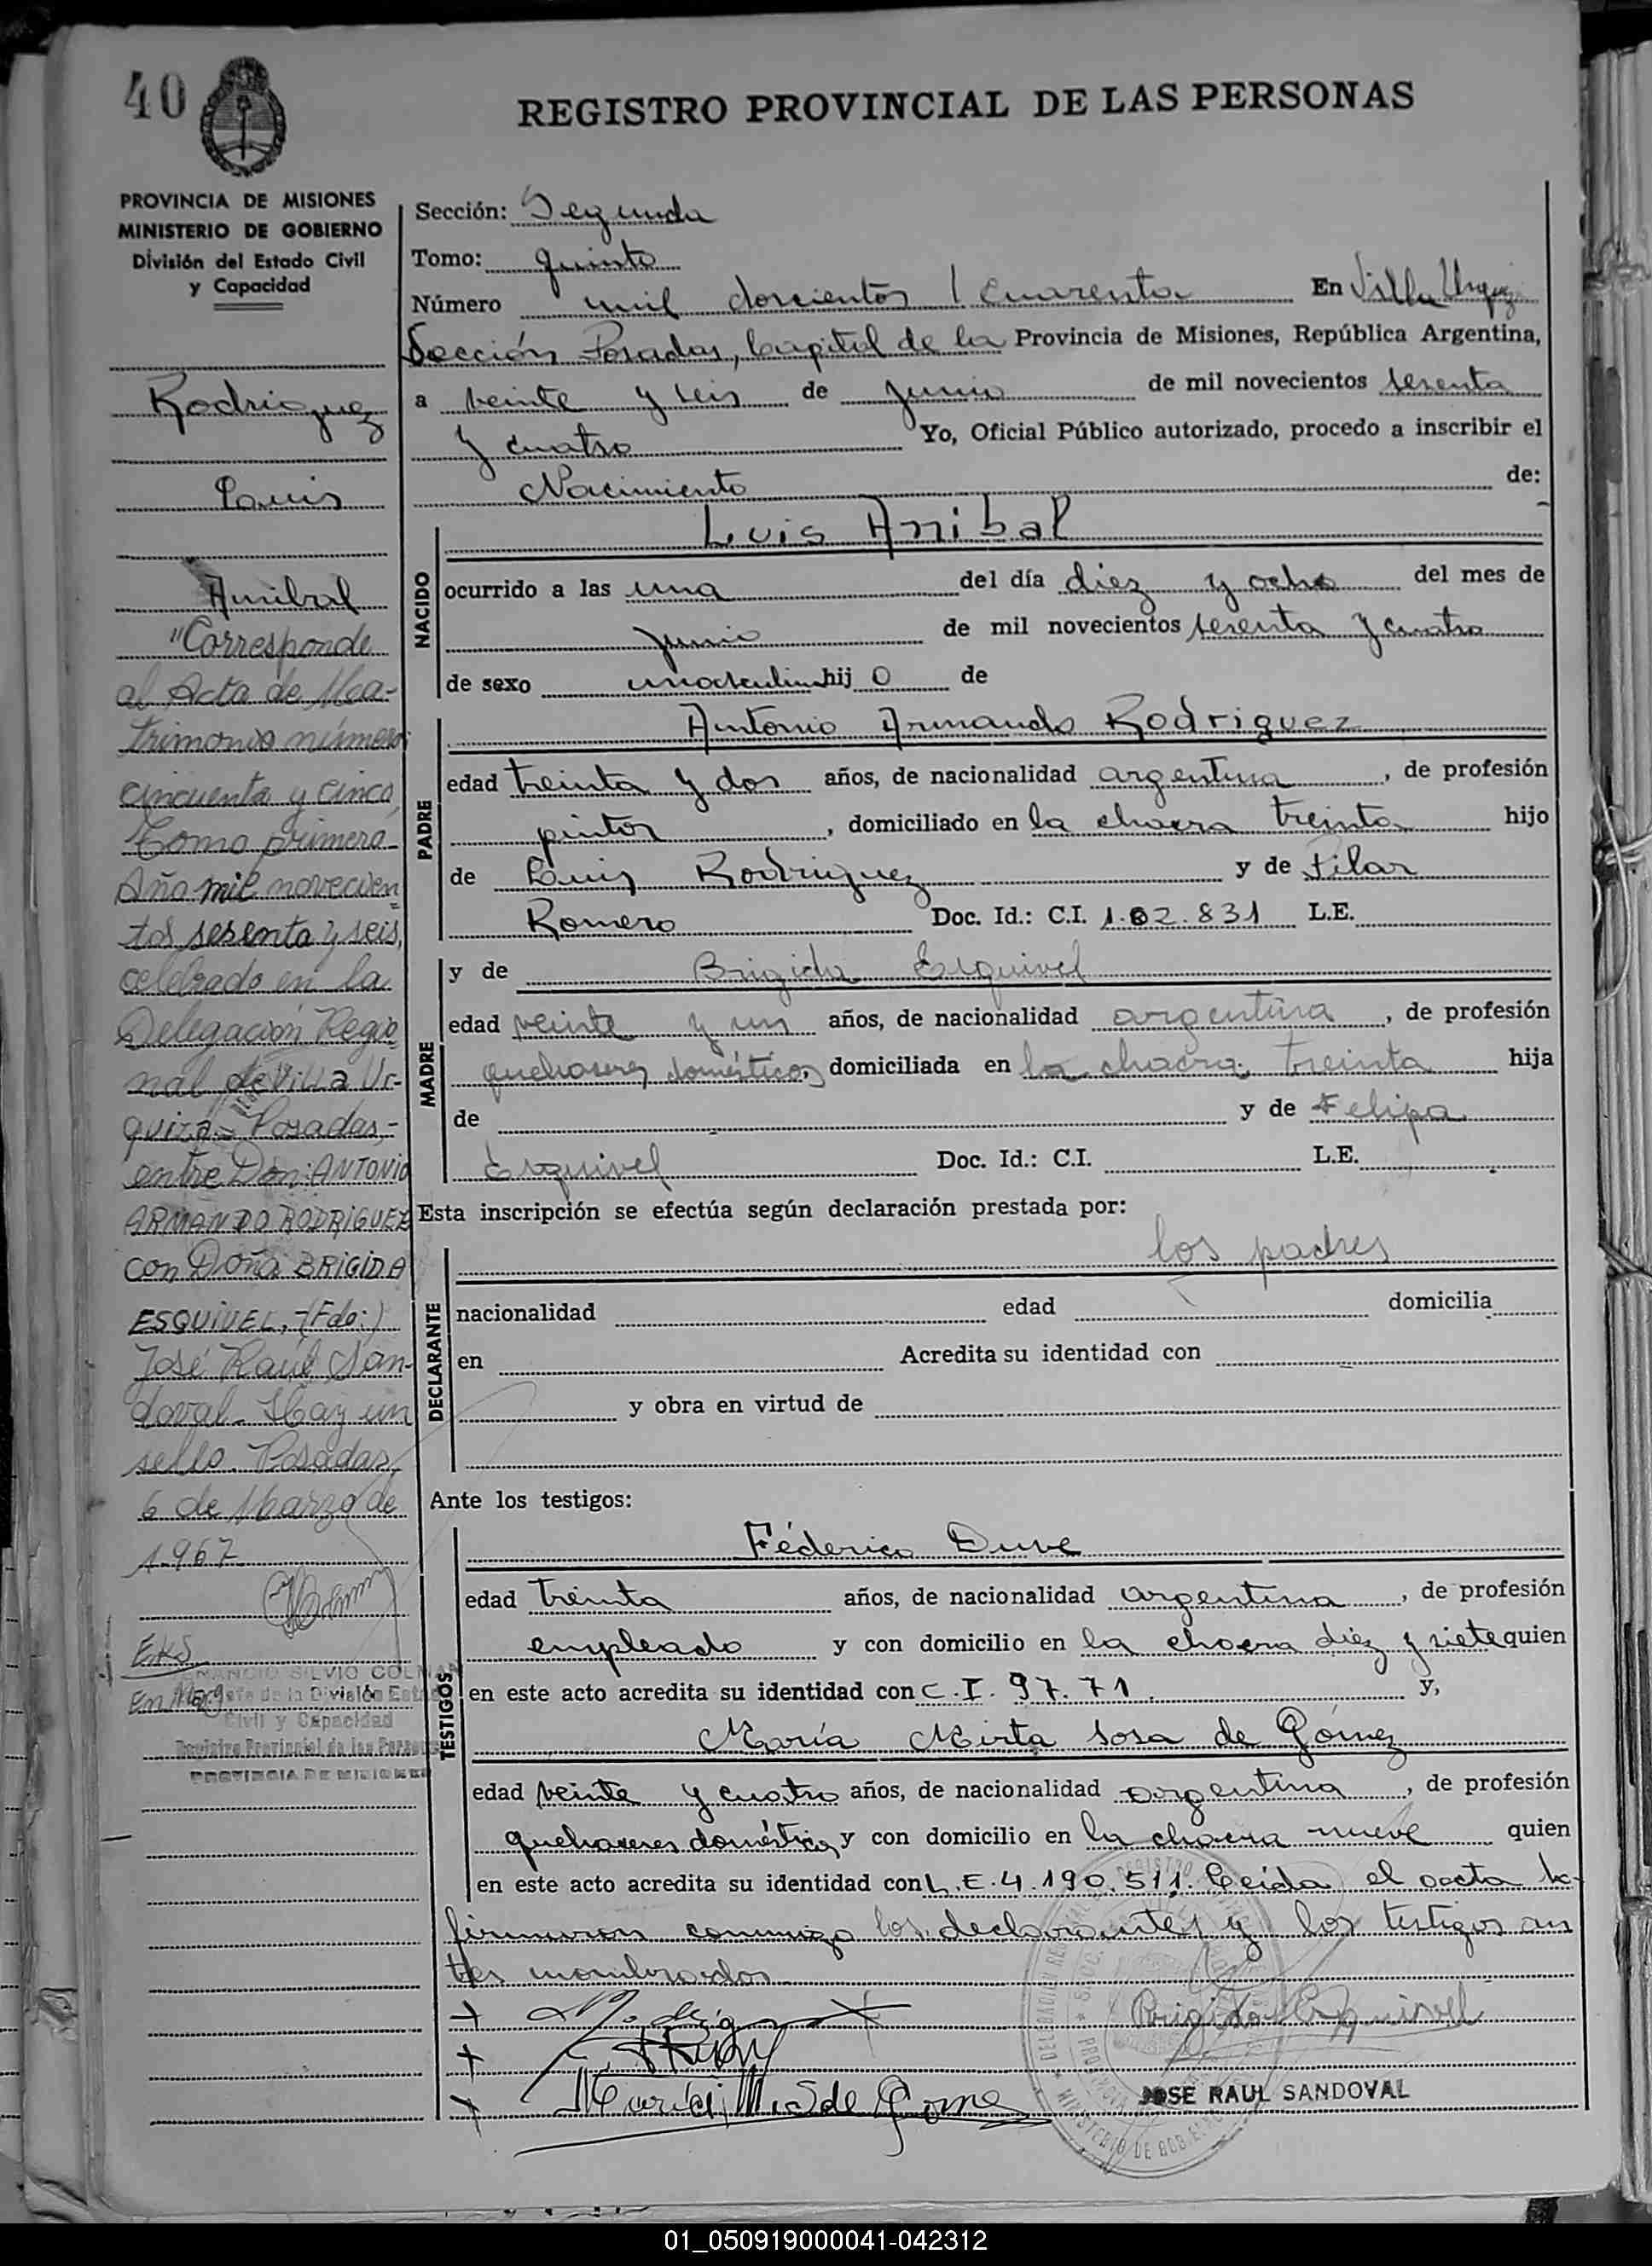 40
REGISTRO PROVINCIAL DE LAS PERSONAS
PROVINCIA DE MISIONES
MINISTERIO DE GOBIERNO
División del Estado Civil
y Capacidad
Rodriguez
Luis
Anibal
"Corresponde
al Acta de Ma-
trimonio número
cincuenta y cinco,
Tomo primero-
Año mil novecien
tos sesenta y seis,
celebrado en la
Delegación Regio
nal de Villa Ur-
quiza- Posadas,-
entre Don: ANTONIO
ARMANDO RODRIGUEZ
con Doña BRIGIDA
ESQUIVEL,-(Fdo:)
José Raúl San-
doval- Hay un
sello. Posadas,
6 de Marzo de
1.967
EKS
SILVIO
Jefe de la División
Civil y Capacidad
Registro Provincial de las
PROVINCIA DE MISIONES
Sección: Segunda
Tomo: quinto
Número mil doscientos cuarenta En Villa Urquiza
Sección Posadas, Capital de la Provincia de Misiones, República Argentina,
a veinte y seis de junio de mil novecientos sesenta
y cuatro Yo, Oficial Público autorizado, procedo a inscribir el
Nacimiento de:
NACIDO
Luis Anibal
ocurrido a las una del día diez y ocho del mes de
junio de mil novecientos sesenta y cuatro
de sexo masculino hij o de
PADRE
Antonio Armando Rodriguez
edad treinta y dos años, de nacionalidad argentina, de profesión
pintor, domiciliado en la chacra treinta hijo
de Luis Rodriguez y de Pilar
Romero Doc. Id.: C.I. 1.62.831 L.E.
MADRE
y de Brigida Esquivel
edad veinte y un años, de nacionalidad argentina, de profesión
quehaceres domésticos domiciliada en la chacra treinta hija
de y de Felipa
Esquivel Doc. Id.: C.I. L.E.
Esta inscripción se efectúa según declaración prestada por:
DECLARANTE
los padres
nacionalidad edad domicilia
en Acredita su identidad con
y obra en virtud de
Ante los testigos:
TESTIGOS
Féderico Duve
edad treinta años, de nacionalidad argentina, de profesión
empleado y con domicilio en la chacra diez y siete quien
en este acto acredita su identidad con C.I. 97.71. y,
María Mirta Sosa de Gómez
edad veinte y cuatro años, de nacionalidad argentina, de profesión
quehaceres domésticos y con domicilio en la chacra nueve quien
en este acto acredita su identidad con L.E.4.190.511. Leída el acta la
firmaron conmigo los declarantes y los testigos an
tes nombrados
Brigida Esquivel
María M. S de Gome
JOSE RAUL SANDOVAL
01_050919000041-042312